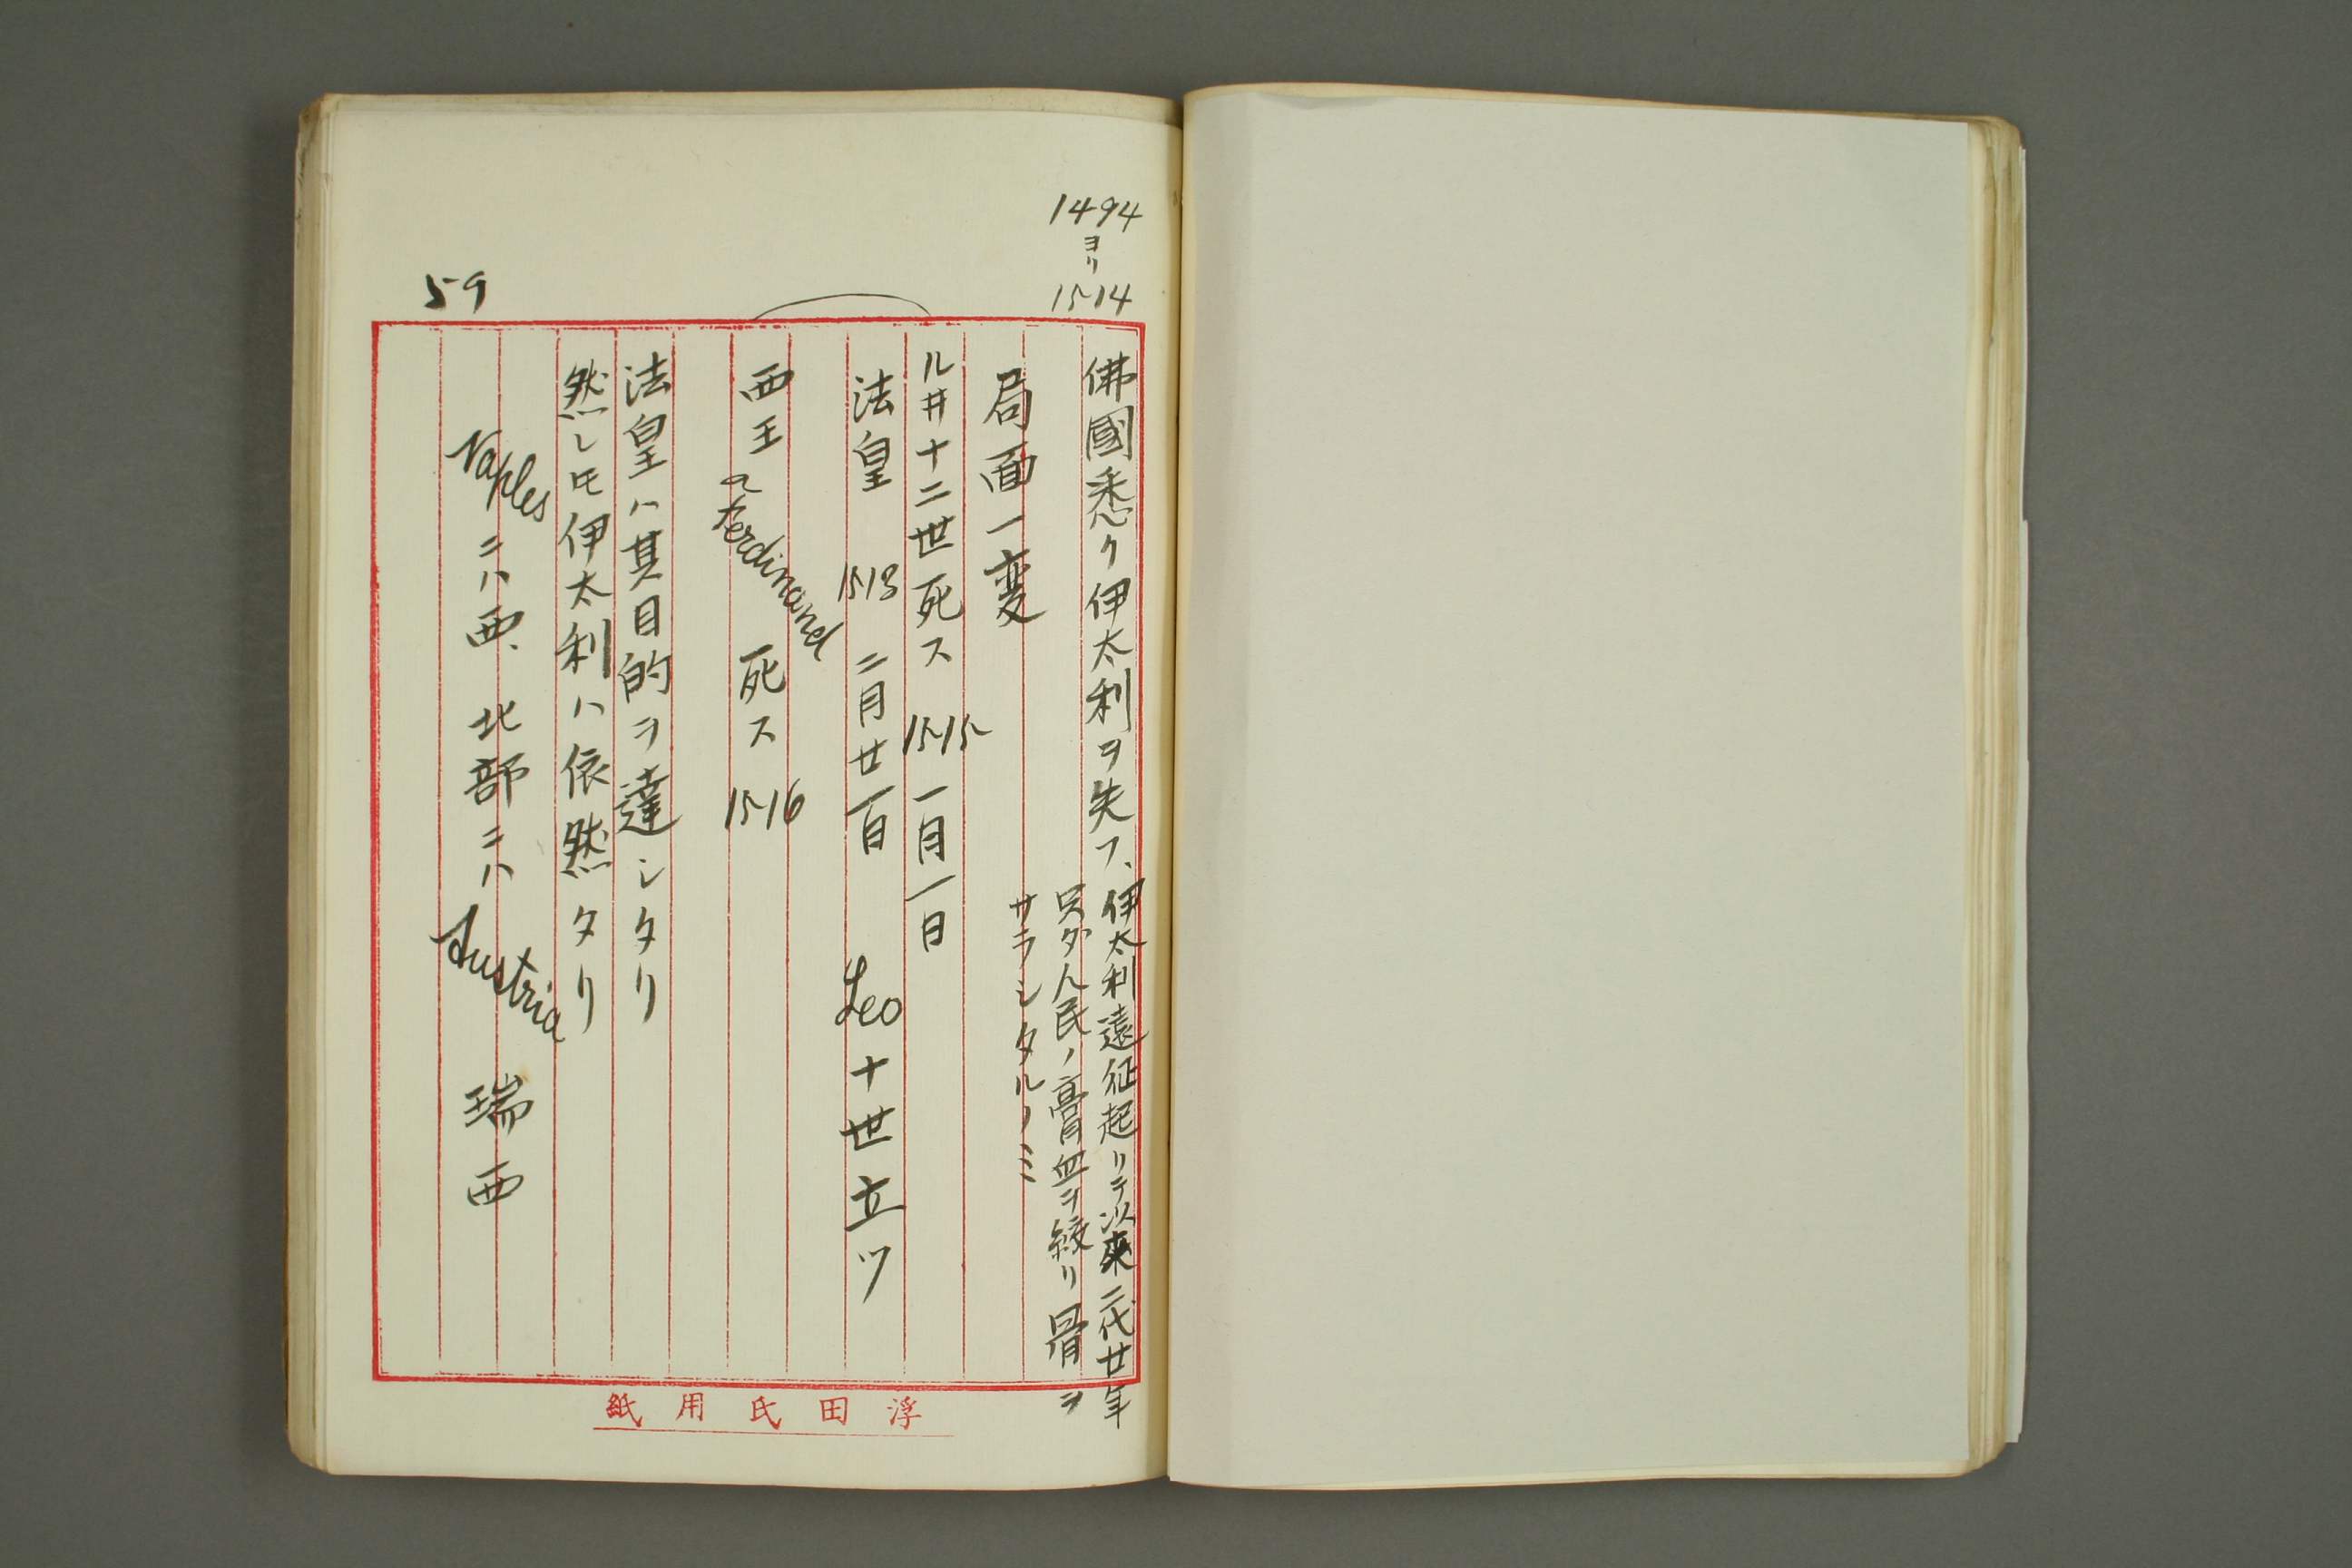 1494
ヨリ
1514
佛國悉ク伊太利ヲ失フ、
伊太利遠征起リテ以来二代廿年
只ダ人民ノ膏血ヲ絞リ骨ヲ
サラシタルノミ
局面一変
ル井十二世死ス 1515 一月一日
法皇 1513 二月廿一日 Leo十世立ツ
西王 Ferdinand 死ス 1516
法皇ハ其目的ヲ達シタリ
然レ𪜈伊太利ハ依然タリ
Naples ニハ西、北部ニハ Austria 瑞西
59
浮田氏用紙